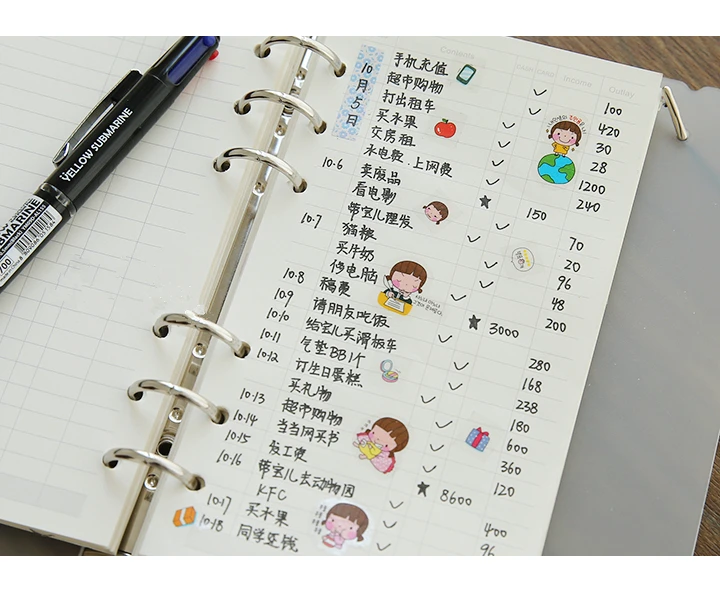 YELLOW SUBMARINE
Contents Income Outlay
10月5日 手机充值 ✓ 100
超市购物 ✓ 420
打出租车 ✓ 30
买水果 ✓ 28
交房租 ✓ 1200
水电费.上网费 ✓ 240
10.6 卖废品 ★ 150
看电影 ✓ 70
带宝儿理发 ✓ 20
10.7 猫粮 ✓ 96
买牛奶 ✓ 48
修电脑 ✓ 200
10.8 稿费 ★ 3000
10.9 请朋友吃饭 ✓ 280
10.10 给宝儿买滑板车 ✓ 168
10.11 气垫BB1个 ✓ 238
10.12 订生日蛋糕 ✓ 180
买礼物 ✓ 600
10.13 超市购物 ✓ 360
10.14 当当网买书 ✓ 120
10.15 发工资 ★ 8600
10.16 带宝儿去动物园 ✓ 400
KFC ✓ 96
10.17 买水果 ✓
10.18 同学还钱